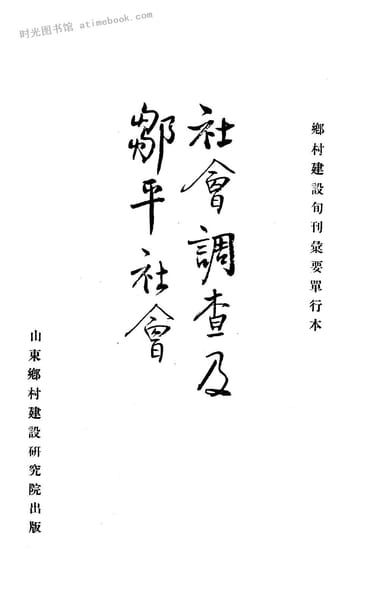 时光图书馆 atimebook.com
鄉村建設旬刊彙要單行本
社會調查及
鄒平社會
山東鄉村建設研究院出版